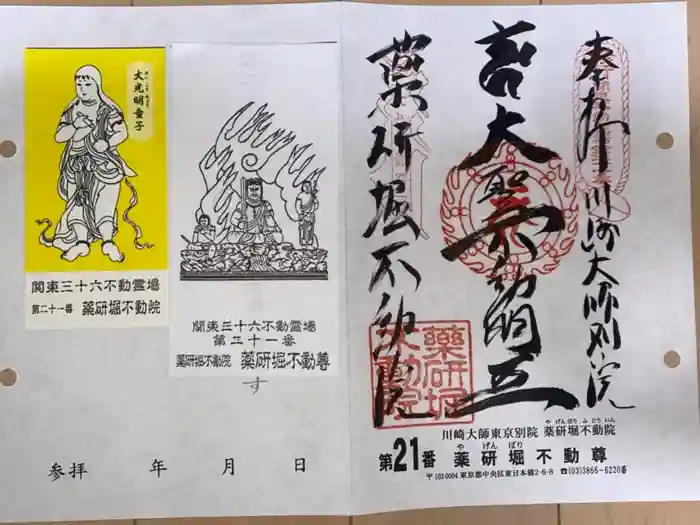 大光明童子
関東三十六不動霊場
第二十一番 薬研堀不動院
関東三十六不動霊場
第二十一番
薬研堀不動院 薬研堀不動尊
す
参拝 年 月 日
奉拝 川崎大師別院
大聖不動明王
薬研堀不動院
薬研堀
不動院
川崎大師東京別院 薬研堀不動院
やげんぼりふどういん
やげんぼり
第21番 薬研堀不動尊
〒103-0004 東京都中央区東日本橋2-6-8 ☎(03)3865-6230番